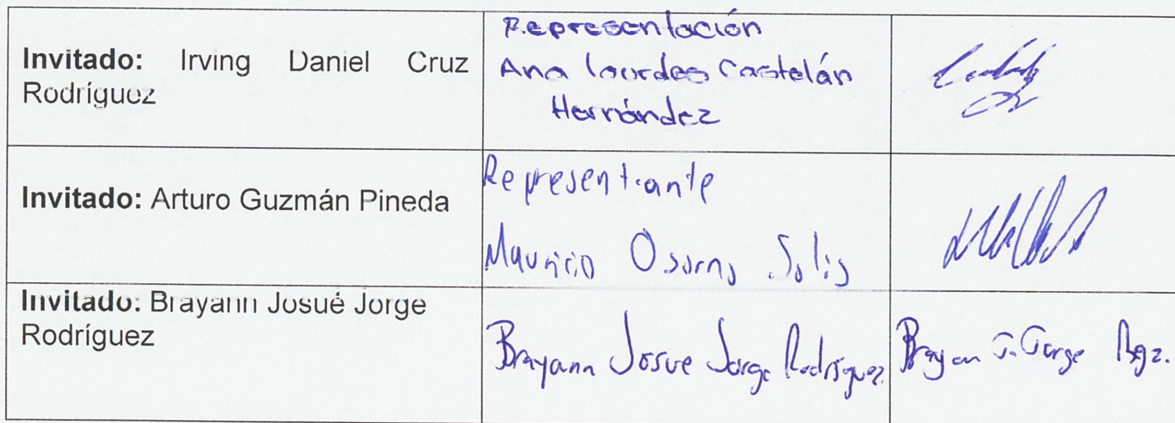 Invitado: Irving Daniel Cruz
Rodríguez
Representación
Ana Lourdes Castelán
Hernández
Invitado: Arturo Guzmán Pineda
Representante
Mauricio Osorno Solis
Invitado: Brayann Josué Jorge
Rodríguez
Brayann Josue Jorge Rodríguez
Brayan J. Jorge Rgz.